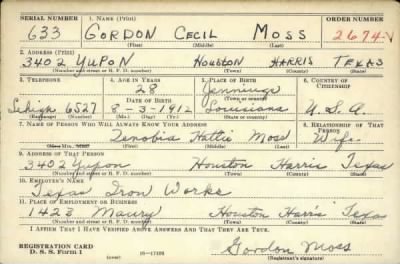 SERIAL NUMBER 1. NAME (Print) ORDER NUMBER
633 GORDON CECIL MOSS 2674
(First) (Middle) (Last)
2. ADDRESS (Print)
3402 YUPON HOUSTON HARRIS TEXAS
(Number and street or R. F. D. number) (Town) (County) (State)
3. TELEPHONE 4. AGE IN YEARS 5. PLACE OF BIRTH 6. COUNTRY OF CITIZENSHIP
28 Jennings
DATE OF BIRTH (Town or county)
Lehigh 6527 8-3-1912 Louisiana U.S.A.
(Exchange) (Number) (Mo.) (Day) (Yr.) (State or country)
7. NAME OF PERSON WHO WILL ALWAYS KNOW YOUR ADDRESS 8. RELATIONSHIP OF THAT PERSON
Zenobia Hattie Moss Wife
9. ADDRESS OF THAT PERSON
3402 Yupon Houston Harris Texas
(Number and street or R. F. D. number) (Town) (County) (State)
10. EMPLOYER'S NAME
Texas Iron Works
11. PLACE OF EMPLOYMENT OR BUSINESS
1423 Maury Houston Harris Texas
(Number and street or R. F. D. number) (Town) (County) (State)
I AFFIRM THAT I HAVE VERIFIED ABOVE ANSWERS AND THAT THEY ARE TRUE.
REGISTRATION CARD
D. S. S. Form 1 (over) 16-17105 Gordon Moss